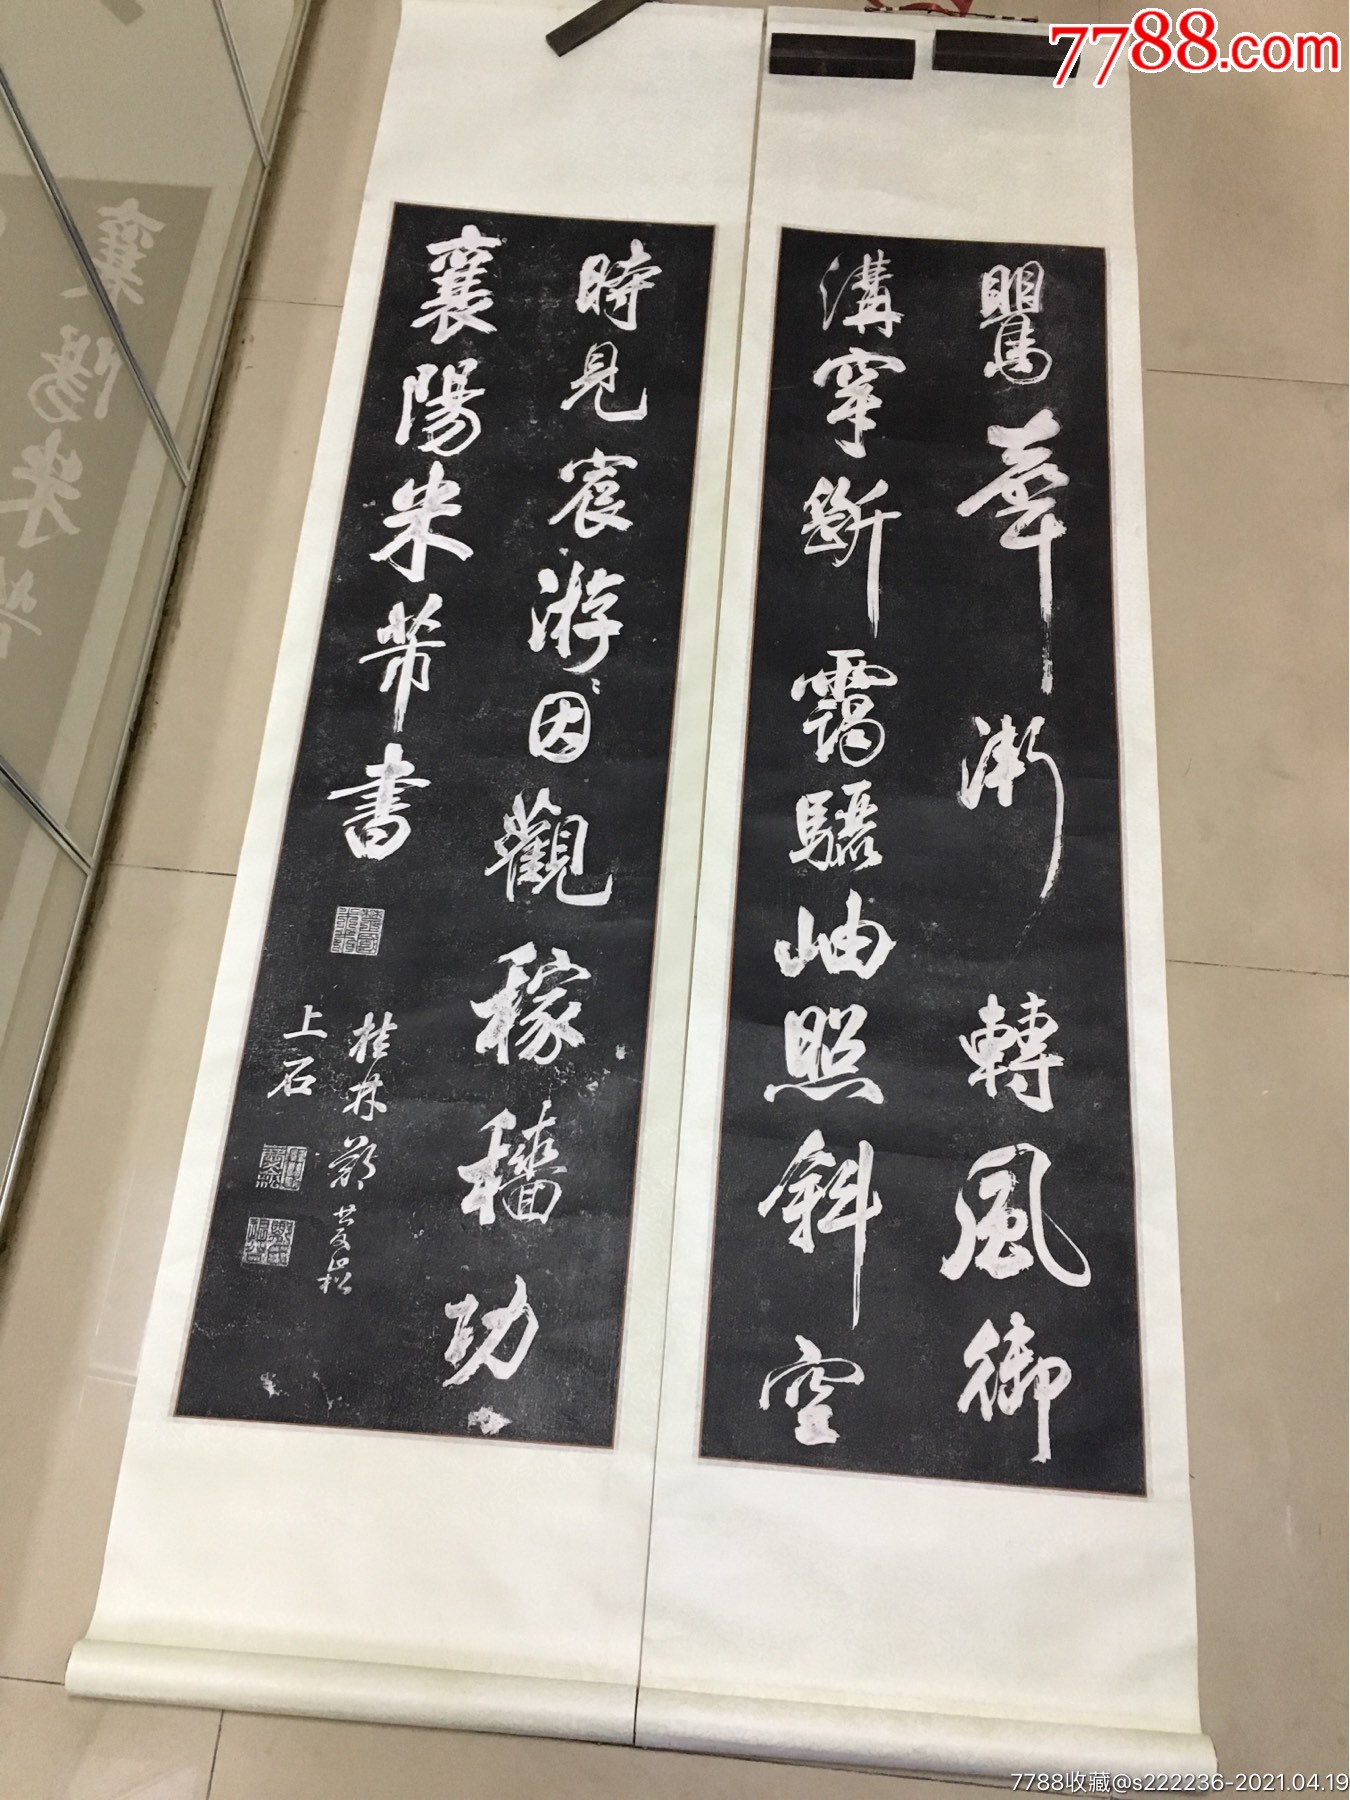 7788.com
鸎華漸轉風御
溝穿斷靄驪岫照斜空
時見宸游因觀稼穡功
襄陽米芾書
桂林
上石
7788收藏@s222236-2021.04.19